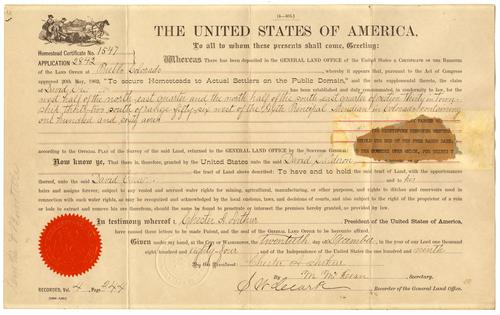 (4—405.)
THE UNITED STATES OF AMERICA,
To all to whom these presents shall come, Greeting:
Homestead Certificate No. 1847
APPLICATION 2842
Whereas There has been deposited in the GENERAL LAND OFFICE of the United States a CERTIFICATE OF THE REGISTER
OF THE LAND OFFICE AT Pueblo Colorado, whereby it appears that, pursuant to the Act of Congress
approved 20th May, 1862, "To secure Homesteads to Actual Settlers on the Public Domain," and the acts supplemental thereto, the claim
of David has been established and duly consummated, in conformity to law, for the
west half of the north east quarter and the north half of the south east quarter of section thirty in Town-
ship thirty two south of Range fifty six west of the Sixth Principal Meridian in Colorado containing
one hundred and sixty acres
according to the OFFICIAL PLAT of the Survey of the said Land, returned to the GENERAL LAND OFFICE by the SURVEYOR GENERAL
Now know ye, That there is, therefore, granted by the UNITED STATES unto the said David
the tract of Land above described: To have and to hold the said tract of Land, with the appurtenances
thereof, unto the said David and to his
heirs and assigns forever; subject to any vested and accrued water rights for mining, agricultural, manufacturing, or other purposes, and rights to ditches and reservoirs used in
connection with such water rights, as may be recognized and acknowledged by the local customs, laws, and decisions of courts, and also subject to the right of the proprietor of a vein
or lode to extract and remove his ore therefrom, should the same be found to penetrate or intersect the premises hereby granted, as provided by law.
In testimony whereof I, Chester A. Arthur, President of the United States of America,
have caused these letters to be made Patent, and the seal of the General Land Office to be hereunto affixed.
Given under my hand, at the CITY OF WASHINGTON, the twentieth day of December, in the year of our Lord one thousand
eight hundred and eighty four, and of the Independence of the United States the one hundred and ninth
By the President: Chester A. Arthur
By M. McKean, Secretary.
S. W. Clark, Recorder of the General Land Office.
RECORDED, Vol. 4, Page 244